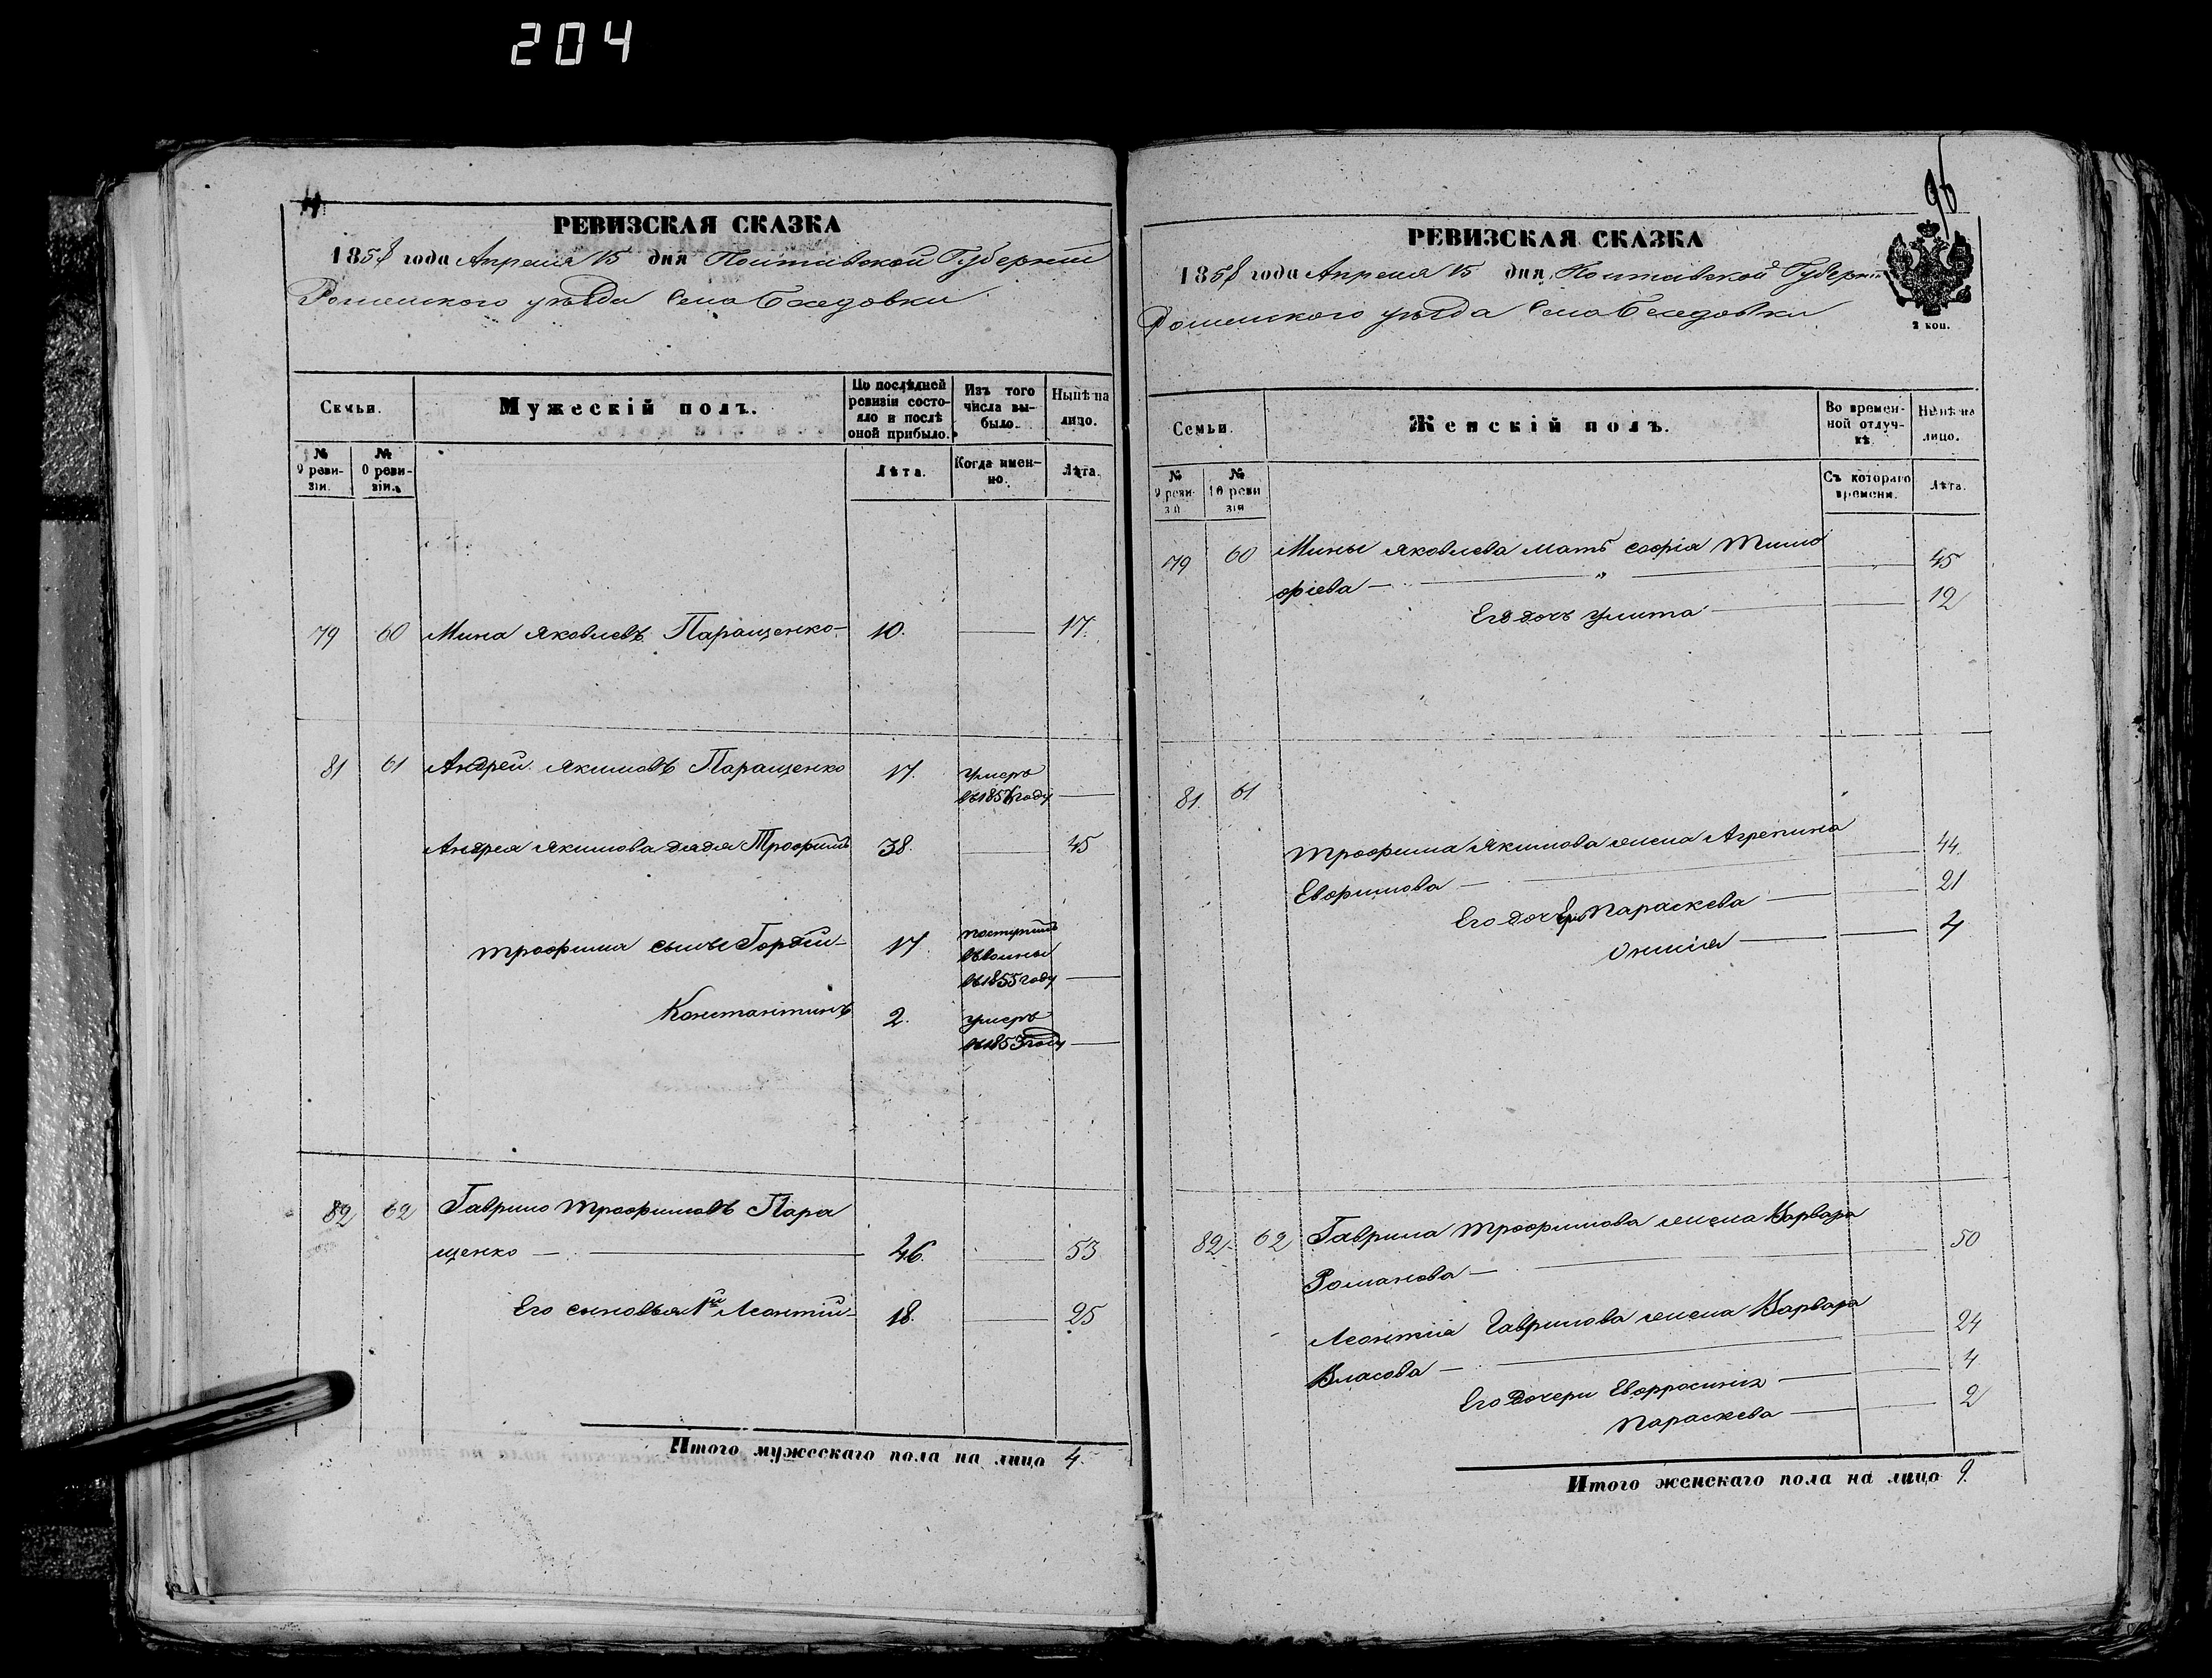 204
РЕВИЗСКАЯ СКАЗКА
1858 года Апреля 15 дня Полтавской Губернии
Роменского уѣзда Села Беседовки
Семьи.
Мужескій полъ.
По послѣдней ревизіи состо-
яло и послѣ
оной прибыло.
Изъ того
числа вы-
было.
Нынѣ на
лицо.
№
9 реви-
зіи.
№
0 реви-
зіи.
Лѣта.
Когда имен-
но.
Лѣта.
79 60 Мина Яковлевъ Паращенко 10. 17.
81 61 Андрей Якимовъ Паращенко 17. умеръ
въ 1857 году
Андрея Якимова дядя Трофимъ 38. 45
Трофима сыны Гордѣй 17. поступилъ
въ воины
въ 1855 году
Константинъ 2. умеръ
въ 1853 году
82 62 Гаврило Трофимовъ Пара
щенко 46. 53
Его сыновья 1й Леонтій 18. 25
Итого мужескаго пола на лицо 4.
96
РЕВИЗСКАЯ СКАЗКА
1858 года Апреля 15 дня Полтавской Губерніи
Роменского уѣзда Села Беседовки
2 коп.
Семьи.
Женскій полъ.
Во времен-
ной отлуч-
кѣ.
Нынѣ на
лицо.
№
9 реви-
зіи
№
10 реви
зіи
Съ котораго
времени.
Лѣта.
79 60 Мины Яковлева мать Софія Тимо
фіева 45
Его дочь Улита 12
81. 61.
Трофима Якимова жена Агрепина
Евфимова 44.
Его дочери Параскева 21
4
82. 62 Гаврила Трофимова жена Варвара
Романова 50
Леонтія Гаврилова жена Варвара
Власова 24
Его дочери Евфросинія 4
Параскева 2
Итого женскаго пола на лицо 9.